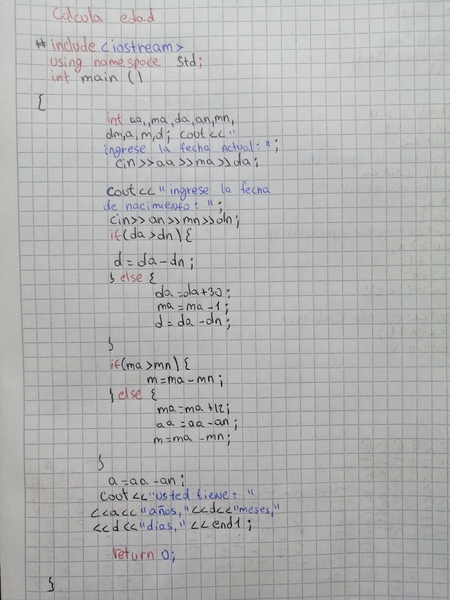 Calcula edad
# include <iostream>
using namespace Std;
int main ()
{
int aa,,ma,da,an,mn,
dm,a,m,d; cout<<"
ingrese la fecha Actual: ";
cin>>aa>>ma>>da;
cout<<"ingrese la fecha
de nacimiento: ";
cin>>an>>mn>>dn;
if(da>dn){
d=da-dn;
} else {
da=da+30;
ma=ma-1;
d=da-dn;
}
if(ma>mn){
m=ma-mn;
} else {
ma=ma+12;
aa=aa-an;
m=ma-mn;
}
a=aa-an;
cout<<"usted tiene: "
<<a<<"años,"<<d<<"meses,"
<<d<<"dias,"<<end1;
return 0;
}